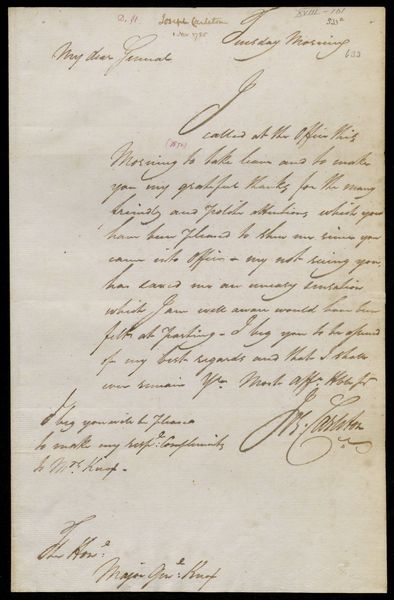 D.S.
Joseph Carleton
1 Nov 1785
XVIII-101
533
Tuesday Morning
633
My dear General
I
called at the Office this
Morning to take leave and to make
you my grateful thanks for the many
friendly and Polite attentions which you
have been pleased to shew me since you
came into Office - my not seeing you
has saved me an uneasy sensation
which I am well aware would have been
felt at parting - I beg you to be assured
of my best regards and that I shall
ever remain Yr. Most Affe. Hble St
Js. Carleton
I beg you will be pleased
to make my respe. Compliments
to Mrs. Knox -
The Hone.
Major Genl. Knox